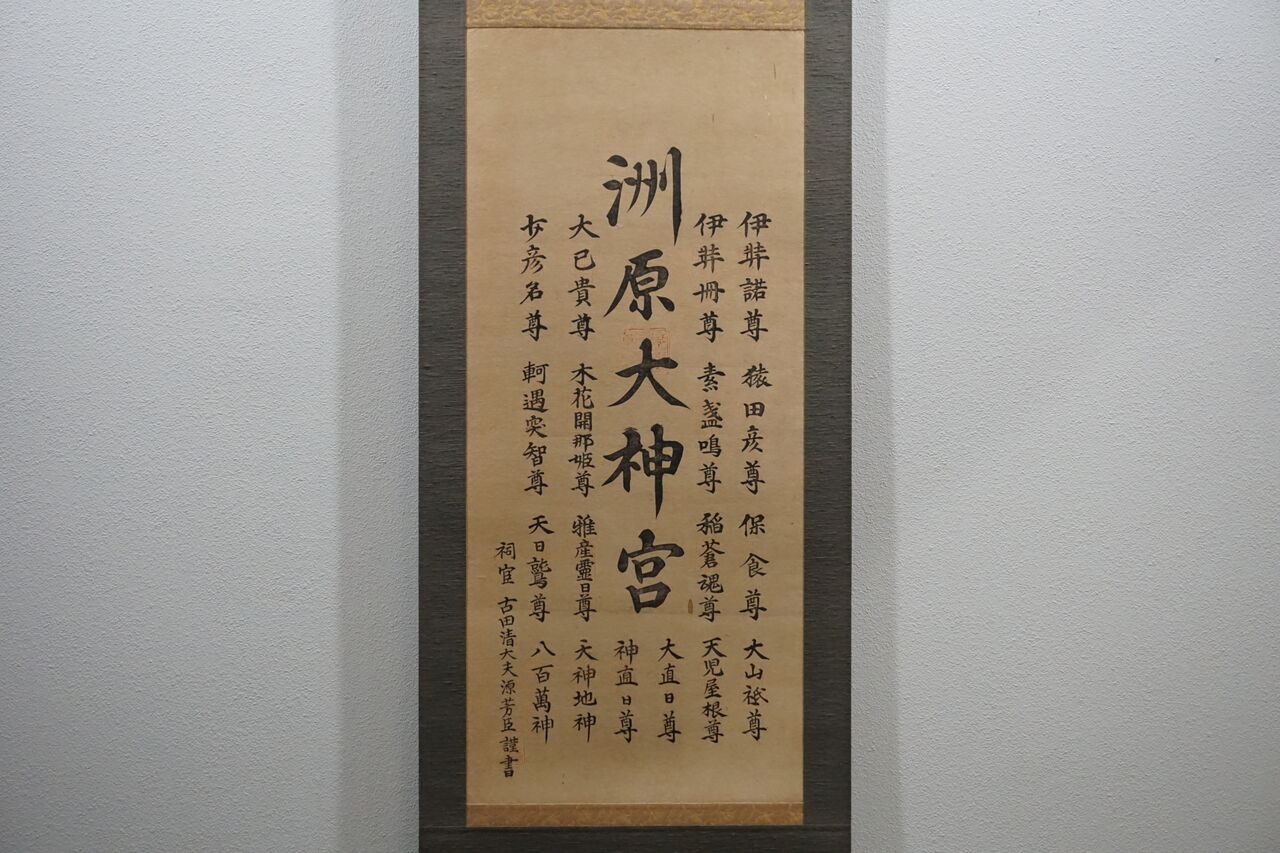 伊弉諾尊 猿田彦尊 保食尊 大山祇尊
伊弉冊尊 素盞鳴尊 稲蒼魂尊 天児屋根尊
洲原大神宮
大直日尊
神直日尊
大已貴尊 木花開耶姫尊 雅産靈日尊 天神地神
少彦名尊 軻遇突智尊 天日鷲尊 八百萬神
祠官 古田清大夫源芳臣謹書